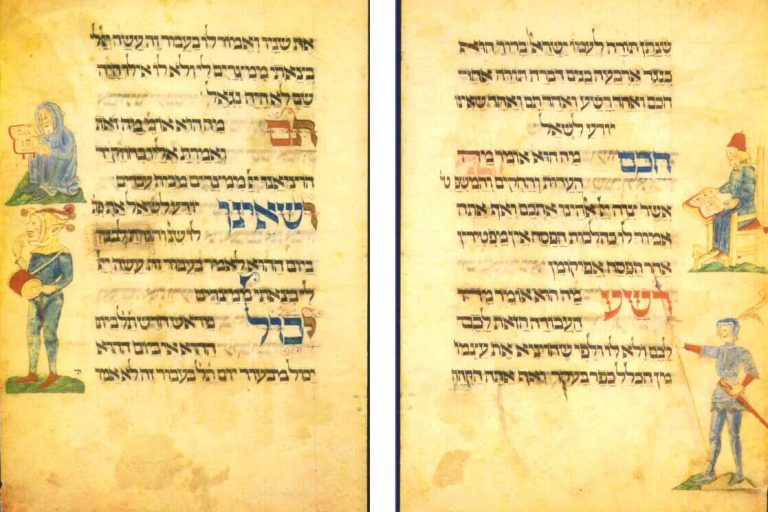 שנתן תורה לעמו ישראל ברוך הוא
כנגד ארבעה בנים דברה תורה אחד
חכם ואחד רשע ואחד תם ואחד שאינו
יודע לשאל
חכם מה הוא אומר מה
העדות והחקים והמשפט'
אשר צוה אלהינו אתכם ואף אתה
אמור לו כהלכות הפסח אין מפטירין
אחר הפסח אפיקומן
רשע מה הוא אומר מה
העבודה הזאת לכם
לכם ולא לו ולפי שהוציא את עצמו
מן הכלל כפר בעקר ואף אתה הקהה
את שניו ואמור לו בעבור זה עשה לי
בצאתי ממצרים לי ולא לו אילו היה
שם לא היה נגאל
תם מה הוא אומר מה זאת
ואמרת אליו בחוזק יד
הוציאנו ממצרים מבית עבדים
ושאינו יודע לשאל את פת
לו שנ' והגדת לבנך
ביום ההוא לאמר בעבור זה עשה
לי בצאתי ממצרים
יכול מראש חדש ת'ל ביום
ההוא אי ביום ההוא
יכול מבעוד יום ת'ל בעבור זה לא אמר